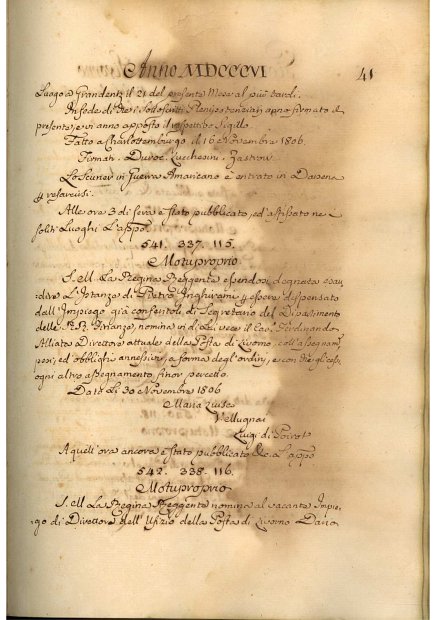 Anno MDCCCVI
41
Luogo a Grandentz il 21 del presente Mese al più tardi.
In fede di che i Sottoscritti Plenipotenziarj anno firmato il
presente, e vi anno apposto il rispettivo Sigillo.
Fatto a Charlottemburgo il 16 Novembre 1806.
Firmati. Duroc. Lucchesini. Zastrow.
Lo Scuner in Guerra Americano è entrato in Darsena
p
Alle ore 3 di sera è stato pubblicato, ed affissato ne i
soliti Luoghi L'appo
541. 337. 115.
Motuproprio
S. M. La Regina Reggente essendosi degnata esau:
dire L'Istanza di Pietro Inghirami p essere dispensato
dall'Impiego già confertoli di Segretario del Dipartimento
delle RR. Finanze, nomina in di Lui vece il Cav. Ferdinando
Alliata Direttore attuale della Posta di Livorno, coll'assegnam.
ed obblighi annessivi, a forma degl'ordini, e con che cessi
ogni altro assegnamento finor percetto.
Dato Li 30 Novembre 1806
Maria Luisa
V. Mugnai
Luigi di Poirot
A quell'ora ancora è stato pubblicato &c. L'appo
542. 338. 116.
Motuproprio
S. M. La Regina Reggente nomina al vacante Impie:
go di Direttore dell'Ufizio della Posta di Livorno Dario